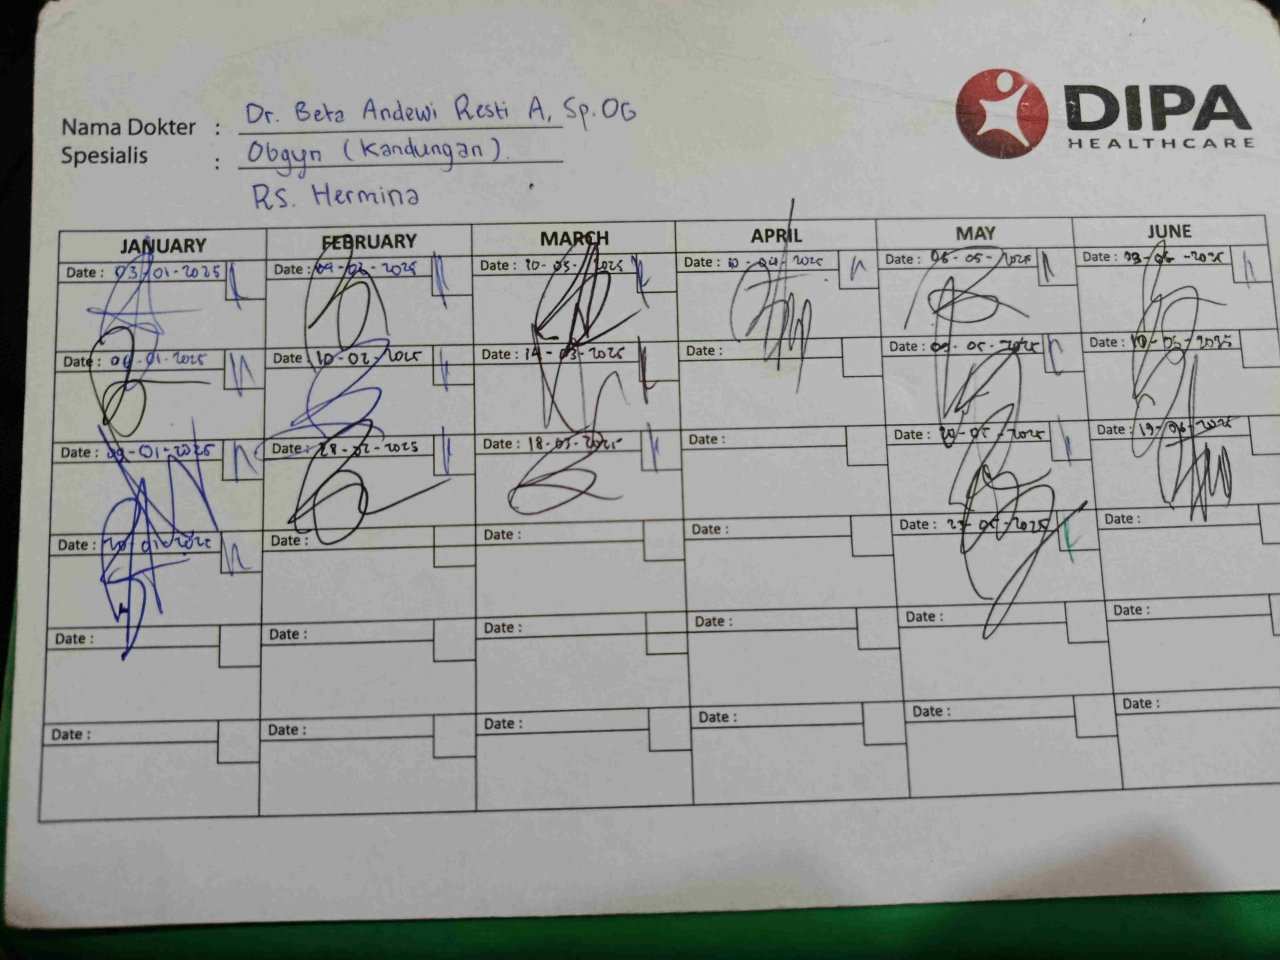 Nama Dokter : Dr. Beta Andewi Resti A, Sp.OG
Spesialis : Obgyn (Kandungan).
RS. Hermina
DIPA
HEALTHCARE
JANUARY FEBRUARY MARCH APRIL MAY JUNE
Date : 03-01-2025 Date : 09-02-2025 Date : 10-03-2025 Date : 10-04-2025 Date : 06-05-2025 Date : 03-06-2025
Date : 06-01-2025 Date : 10-02-2025 Date : 14-03-2025 Date : Date : 09-05-2025 Date : 10-06-2025
Date : 09-01-2025 Date : 28-02-2025 Date : 18-03-2025 Date : Date : 20-05-2025 Date : 19-06-2025
Date : 20-01-2025 Date : Date : Date : Date : 27-05-2025 Date :
Date : Date : Date : Date : Date : Date :
Date : Date : Date : Date : Date : Date :